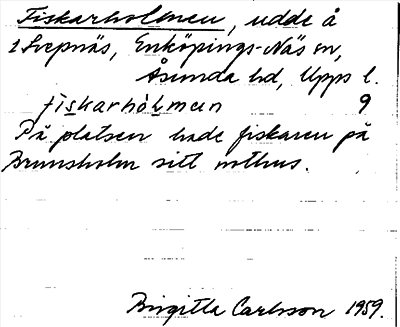 Fiskarholmen, udde å
1 Svepnäs, Enköpings-Näs sn,
Åsunda hd, Upps l.
fiskarhòlmen 9
På platsen hade fiskaren på
Brunsholm sitt nothus.
Birgitta Carlsson 1959.